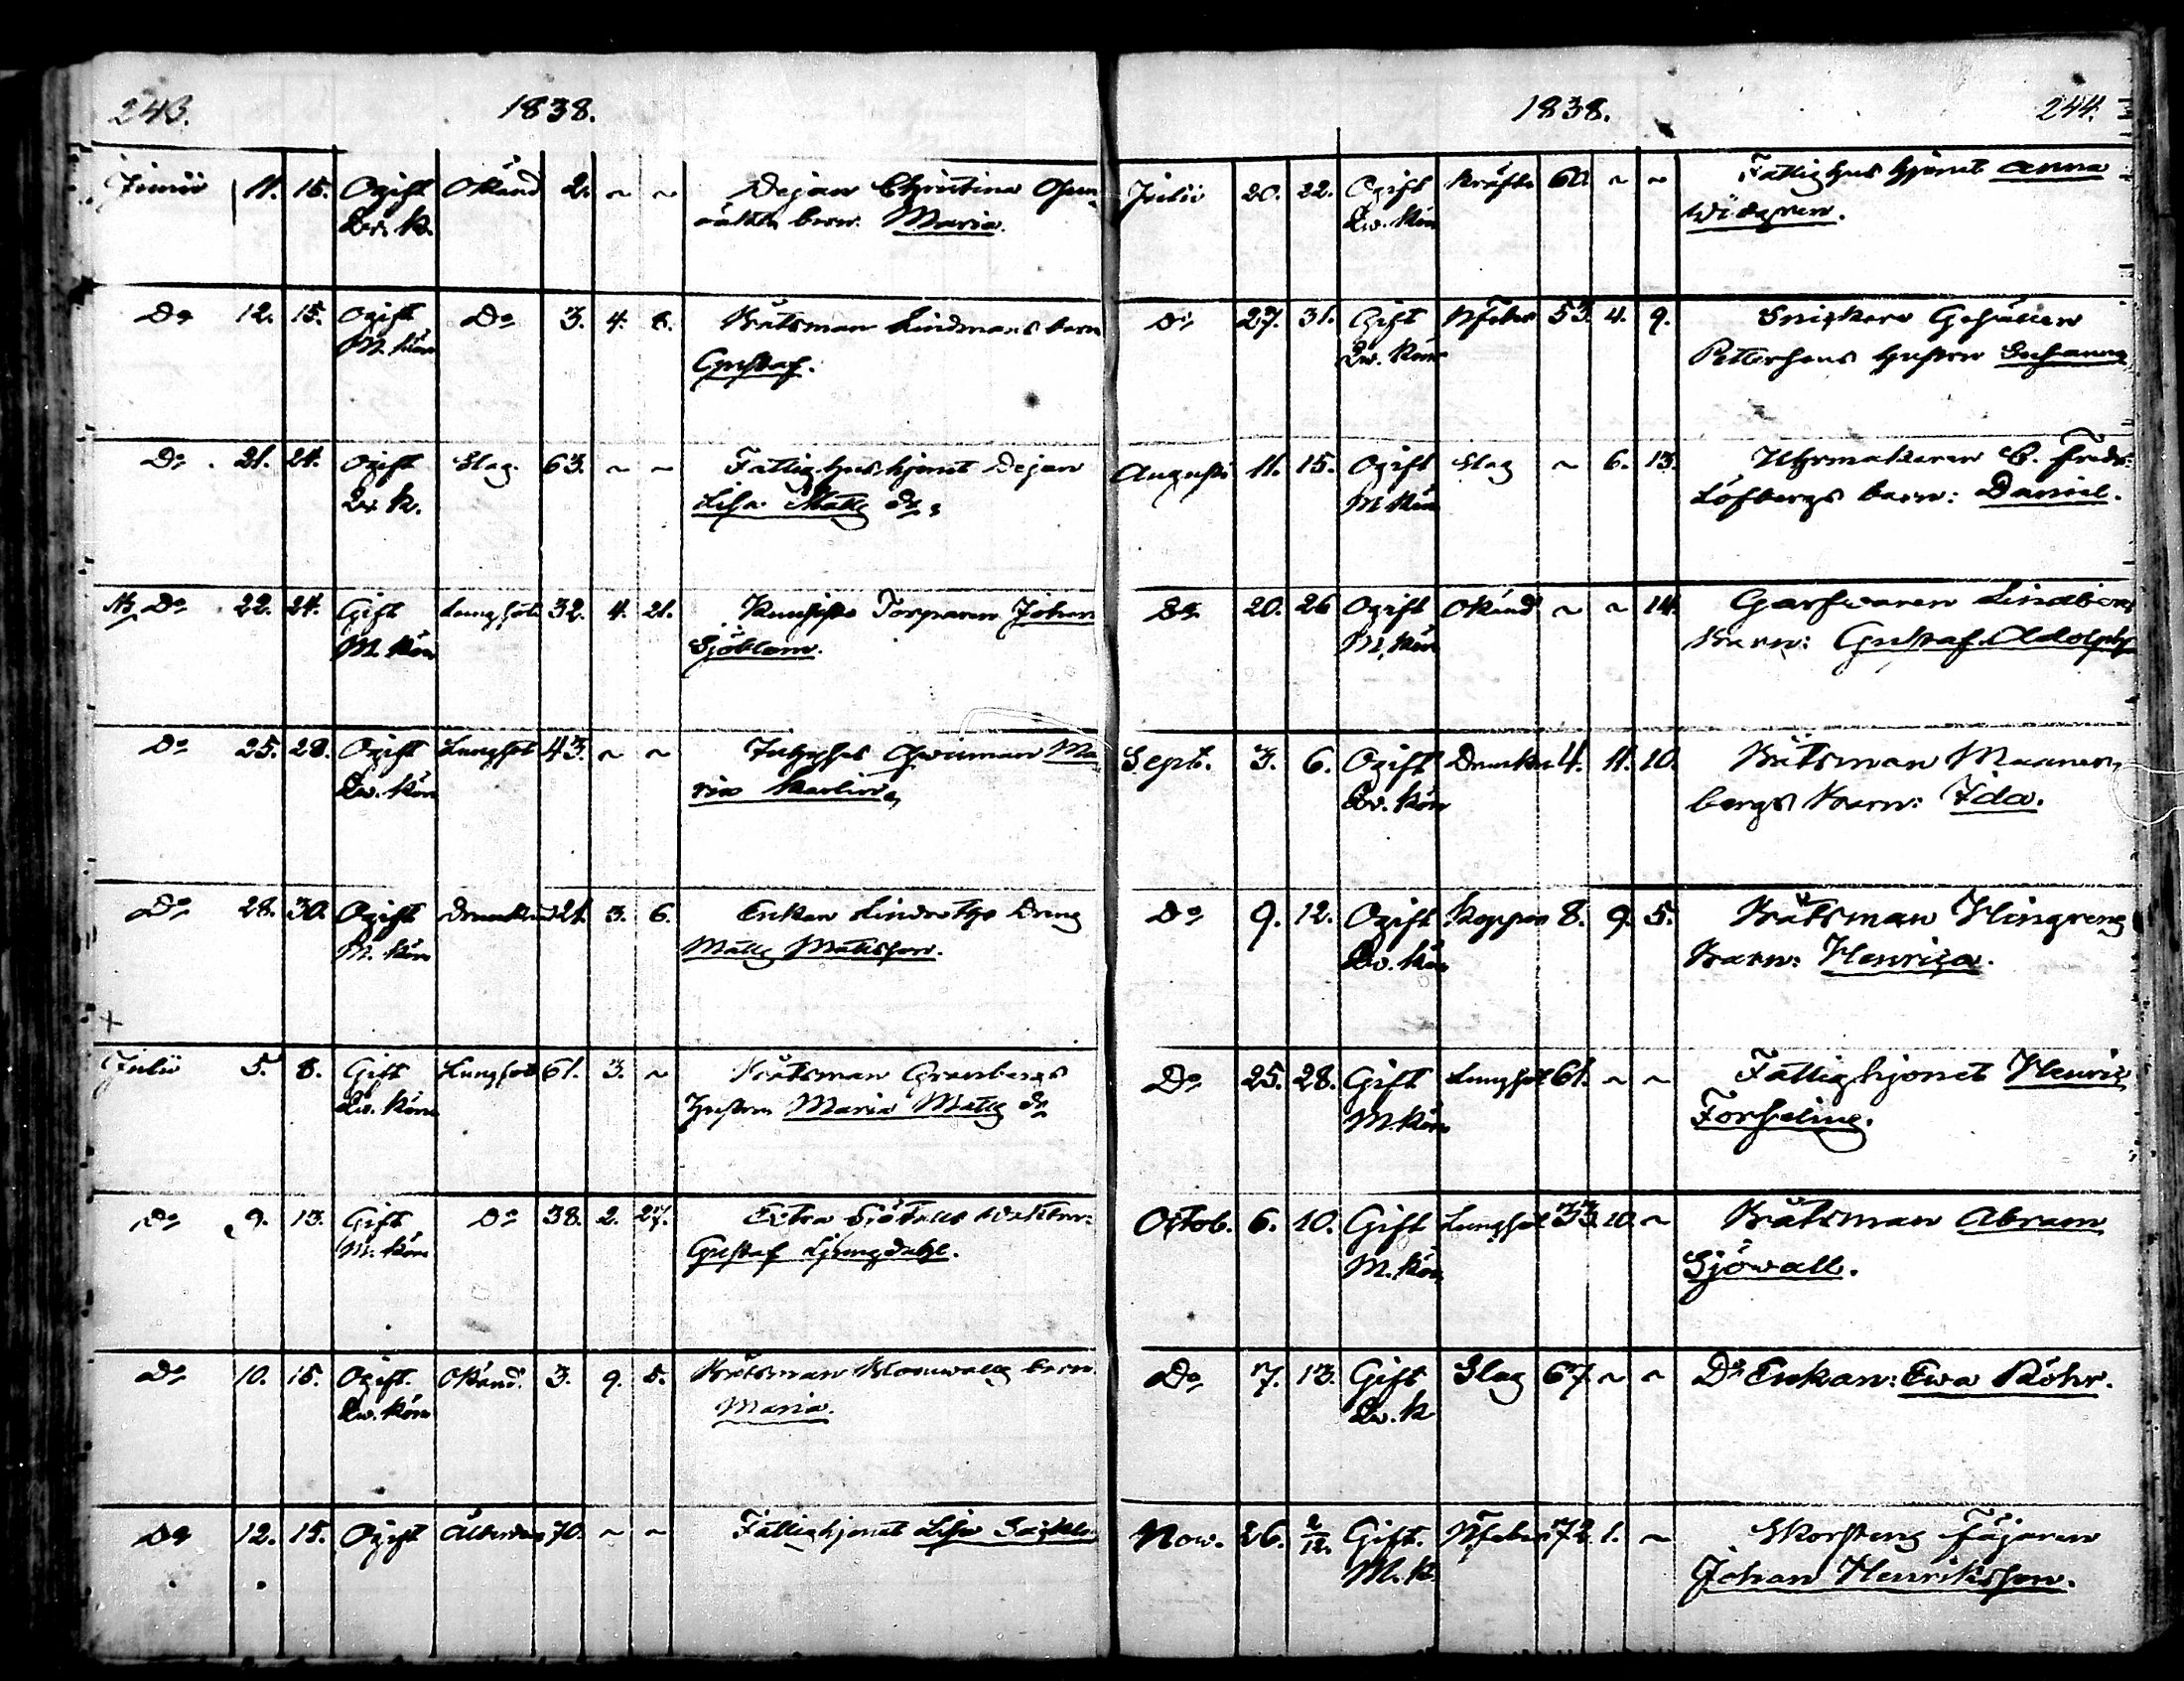 243.
1838.
Junii 11. 15. Ogift Okänd 2. ~ ~ Dejan Christina
Qv. K. barn. Maria.
Do 12. 15. Ogift Do 3. 4. 8. Båtsman Lindmans barn
M. kön Gustaf.
Do 21. 24. Ogift Slag 63. ~ ~ Fattighushjonet Dejan
Qv. K. Lisa Matts dr
Do 22. 24. Gift Lungsot 32. 4. 21. Torparen Johan
M. kön Sjöblom.
Do 25. 28. Ogift Lungsot 43. ~ ~ Inhyses Qvinnan Ma
Qv. kön ria Karlin
Do 28. 30. Ogift 21. 3. 6. Enkan Dreng
M. kön Matts Mattsson.
Julii 5. 8. Gift Lungsot 61. 3. ~ Båtsman Granbergs
Qv. kön hustru Maria Matts dr
Do 9. 13. Gift Do 38. 2. 27. Extra
M. kön Gustaf Ljungdahl.
Do 10. 15. Ogift Okänd. 3. 9. 5. Båtsman barn
Qv. kön Maria.
Do 12. 15. Ogift 70. ~ ~ Fattighjonet Lisa
1838.
244.
Julii 20. 22. Ogift Kräfta 60 ~ ~ Fattighus hjonet Anna
Qv. kön Widgren.
Do 27. 31. Gift Nfeber 53. 4. 9. Snickare Gesällen
Qv. kön Pettersons hustru Susanna
Augusti 11. 15. Ogift Slag ~ 6. 13. Uhrmakaren C. Fredr:
M kön Löfbergs barn: Daniel.
Do 20. 26 Ogift Okänd ~ ~ 14. Garfvaren Lindbergs
M. kön Barn: Gustaf Adolph
Sept. 3. 6. Ogift 4. 11. 10. Båtsman Manner
Qv. kön bergs Barn: Ida.
Do 9. 12. Ogift Koppor 8. 9. 5. Båtsman
Qv. kön Barn: Henrica.
Do 25. 28. Gift Lungsot 61. ~ ~ Fattighjonet Henric
M. kön Forselius.
Octob. 6. 10. Gift Lungsot 33. 10. ~ Båtsman Abram
M. kön Sjöwall.
Do 7. 13. Gift Slag 67. ~ ~ Do Enkan: Ewa Röhr.
Qv. K
Nov. 26. 2/12. Gift. Nfeber 72. 1. ~ Skorstens Fejaren
M. K. Johan Henriksson.